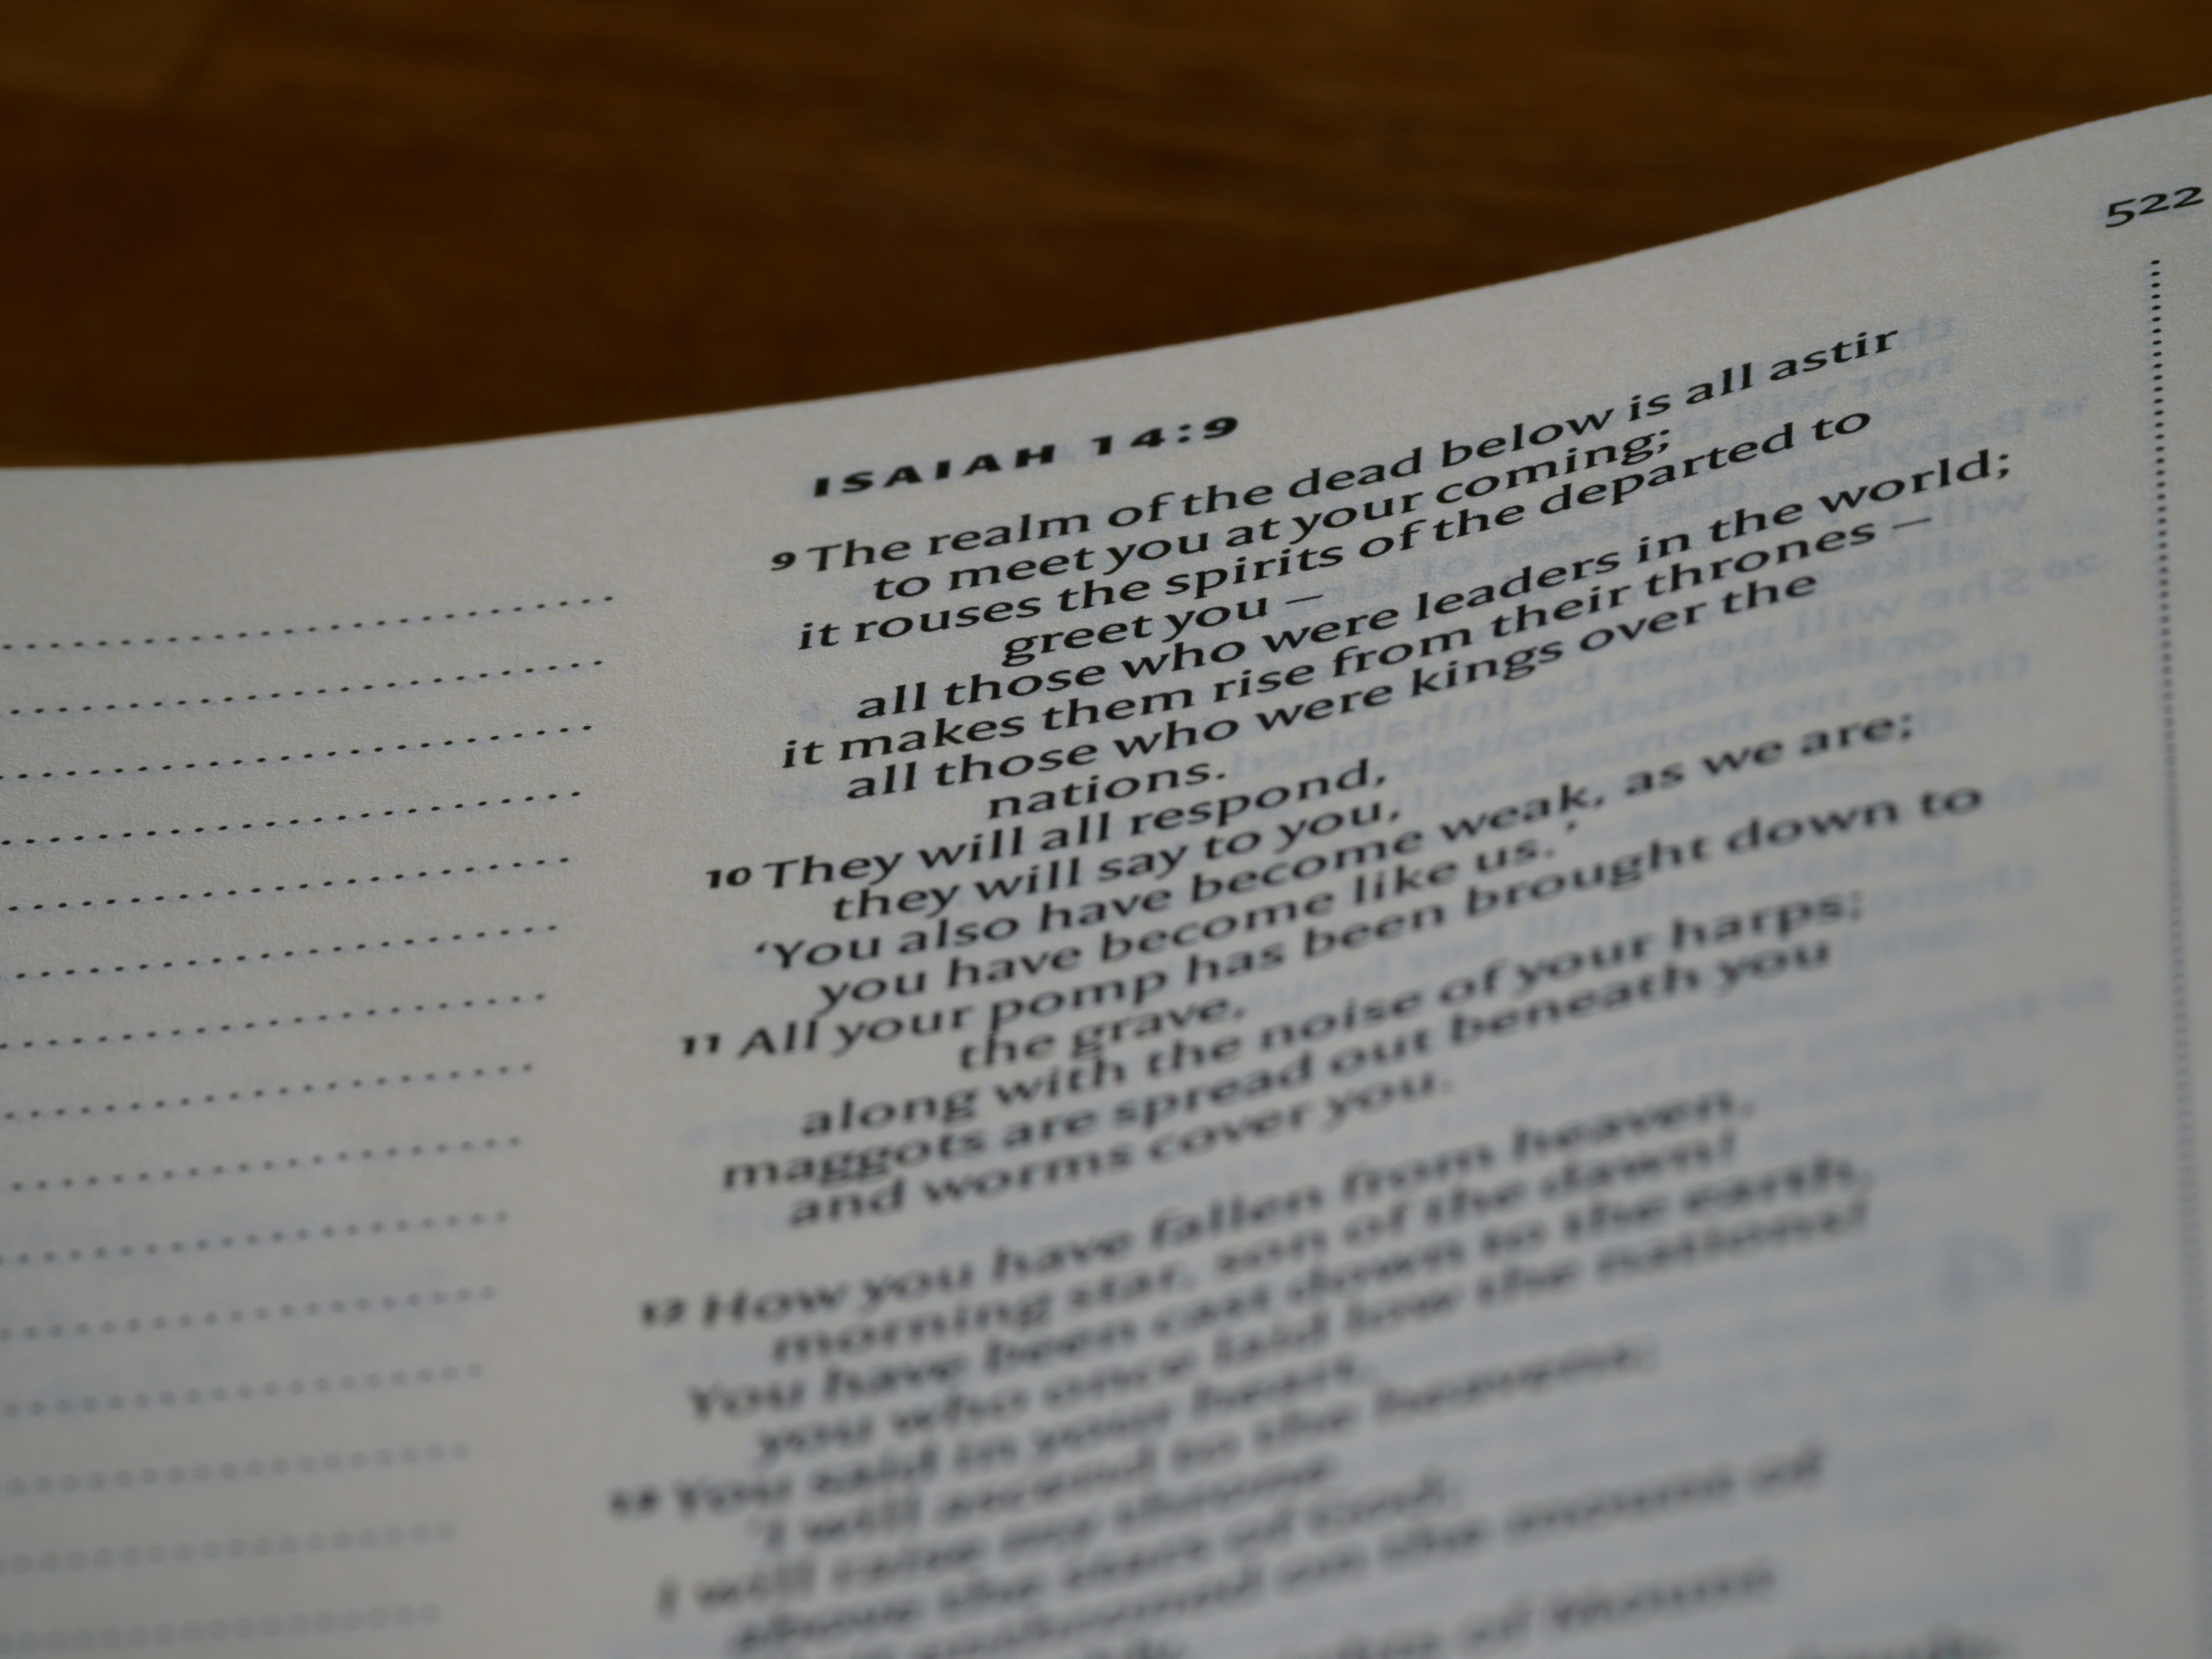 522
ISAIAH 14:9
9 The realm of the dead below is all astir
to meet you at your coming;
it rouses the spirits of the departed to
greet you –
all those who were leaders in the world;
it makes them rise from their thrones –
all those who were kings over the
nations.
10 They will all respond,
they will say to you,
‘You also have become weak, as we are;
you have become like us.’
11 All your pomp has been brought down to
the grave,
along with the noise of your harps;
maggots are spread out beneath you
and worms cover you.
12 How you have fallen from heaven,
morning star, son of the dawn!
You have been cast down to the earth,
you who once laid low the nations!
13 You said in your heart,
‘I will ascend to the heavens;
I will raise my throne
above the stars of God;
on the mount of